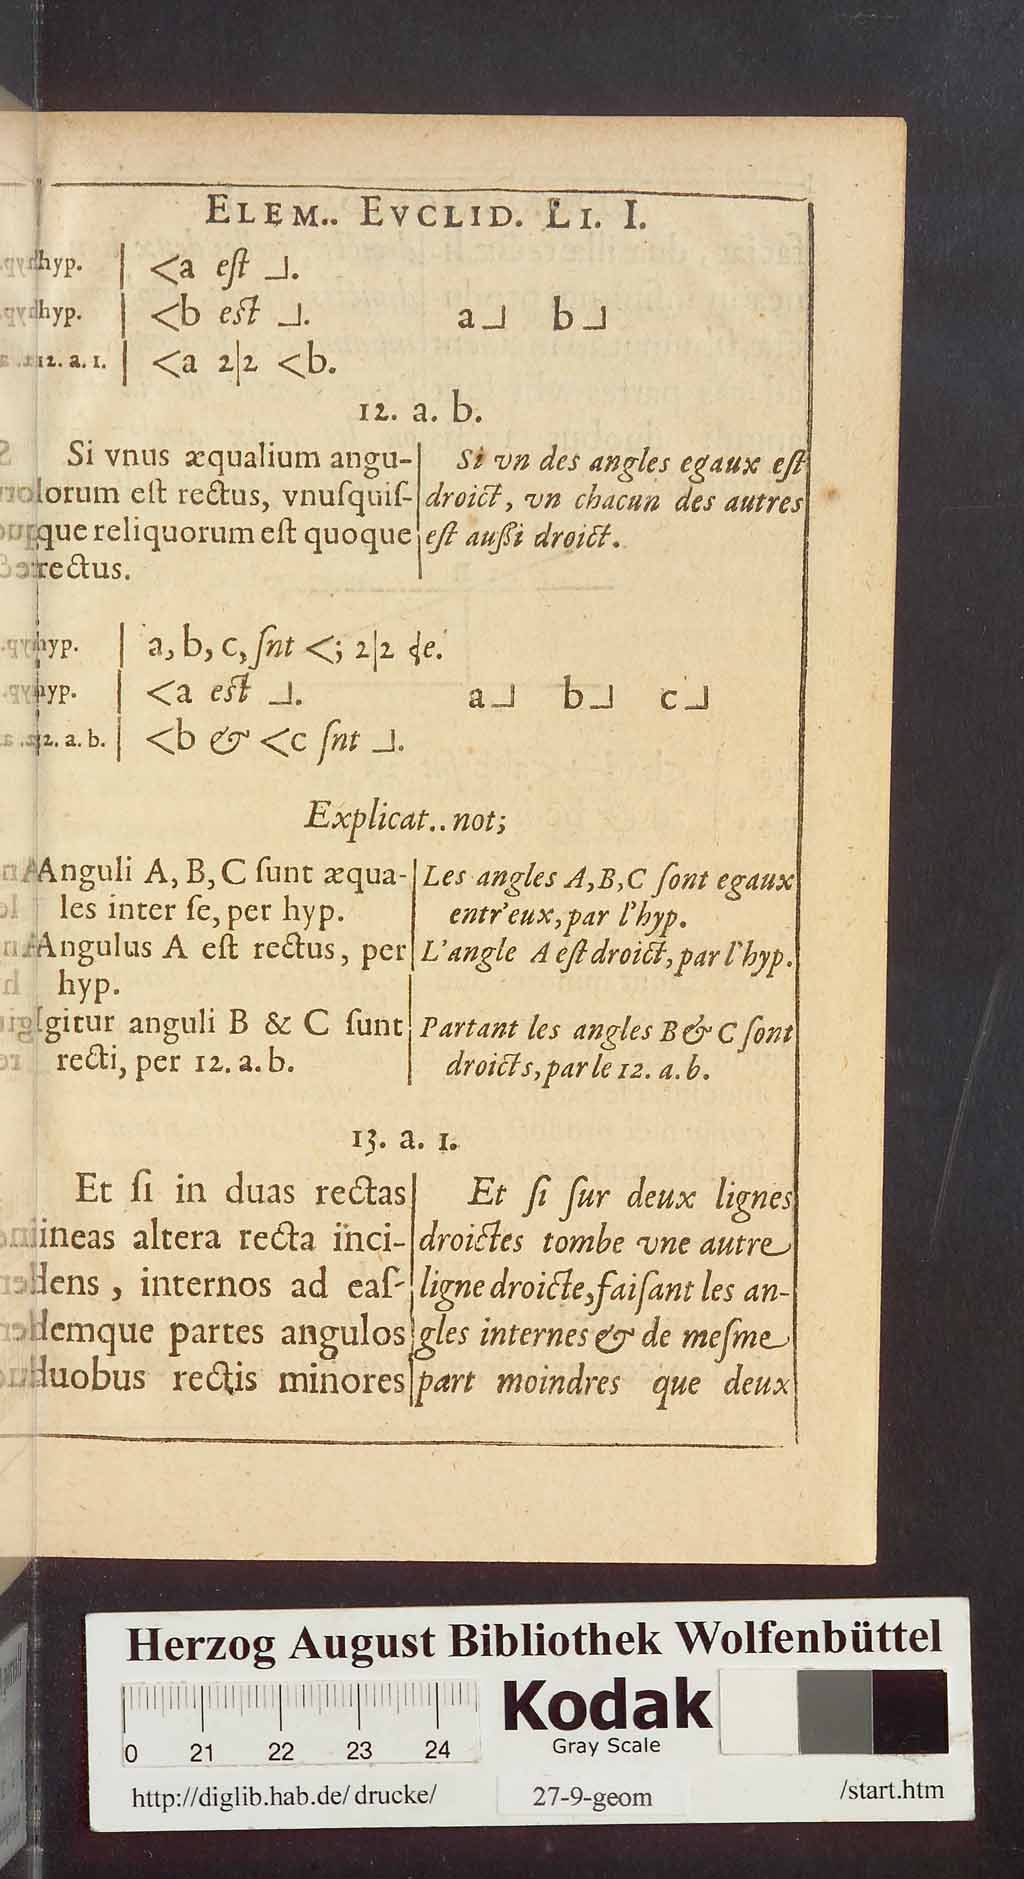 ELEM.. EVCLID. LI. I.
hyp. | <a eſt ⅃.
hyp. | <b eſt ⅃. a⅃ b⅃
12. a. 1. | <a 2|2 <b.
12. a. b.
Si vnus æqualium angu-
lorum eſt rectus, vnuſquiſ-
que reliquorum eſt quoque
rectus.
Si vn des angles egaux eſt
droict, vn chacun des autres
eſt auſsi droict.
hyp. | a, b, c, ſnt <; 2|2 ⦟e.
hyp. | <a eſt ⅃. a⅃ b⅃ c⅃
12. a. b. | <b & <c ſnt ⅃.
Explicat.. not;
Anguli A, B, C ſunt æqua-
les inter ſe, per hyp.
Angulus A eſt rectus, per
hyp.
Igitur anguli B & C ſunt
recti, per 12. a. b.
Les angles A, B, C ſont egaux
entr'eux, par l'hyp.
L'angle A eſt droict, par l'hyp.
Partant les angles B & C ſont
droicts, par le 12. a. b.
13. a. 1.
Et ſi in duas rectas
lineas altera recta inci-
dens, internos ad eaſ-
demque partes angulos
duobus rectis minores
Et ſi ſur deux lignes
droictes tombe vne autre
ligne droicte, faiſant les an-
gles internes & de meſme
part moindres que deux
Herzog August Bibliothek Wolfenbüttel
Kodak
Gray Scale
0 21 22 23 24
http://diglib.hab.de/drucke/ 27-9-geom /start.htm